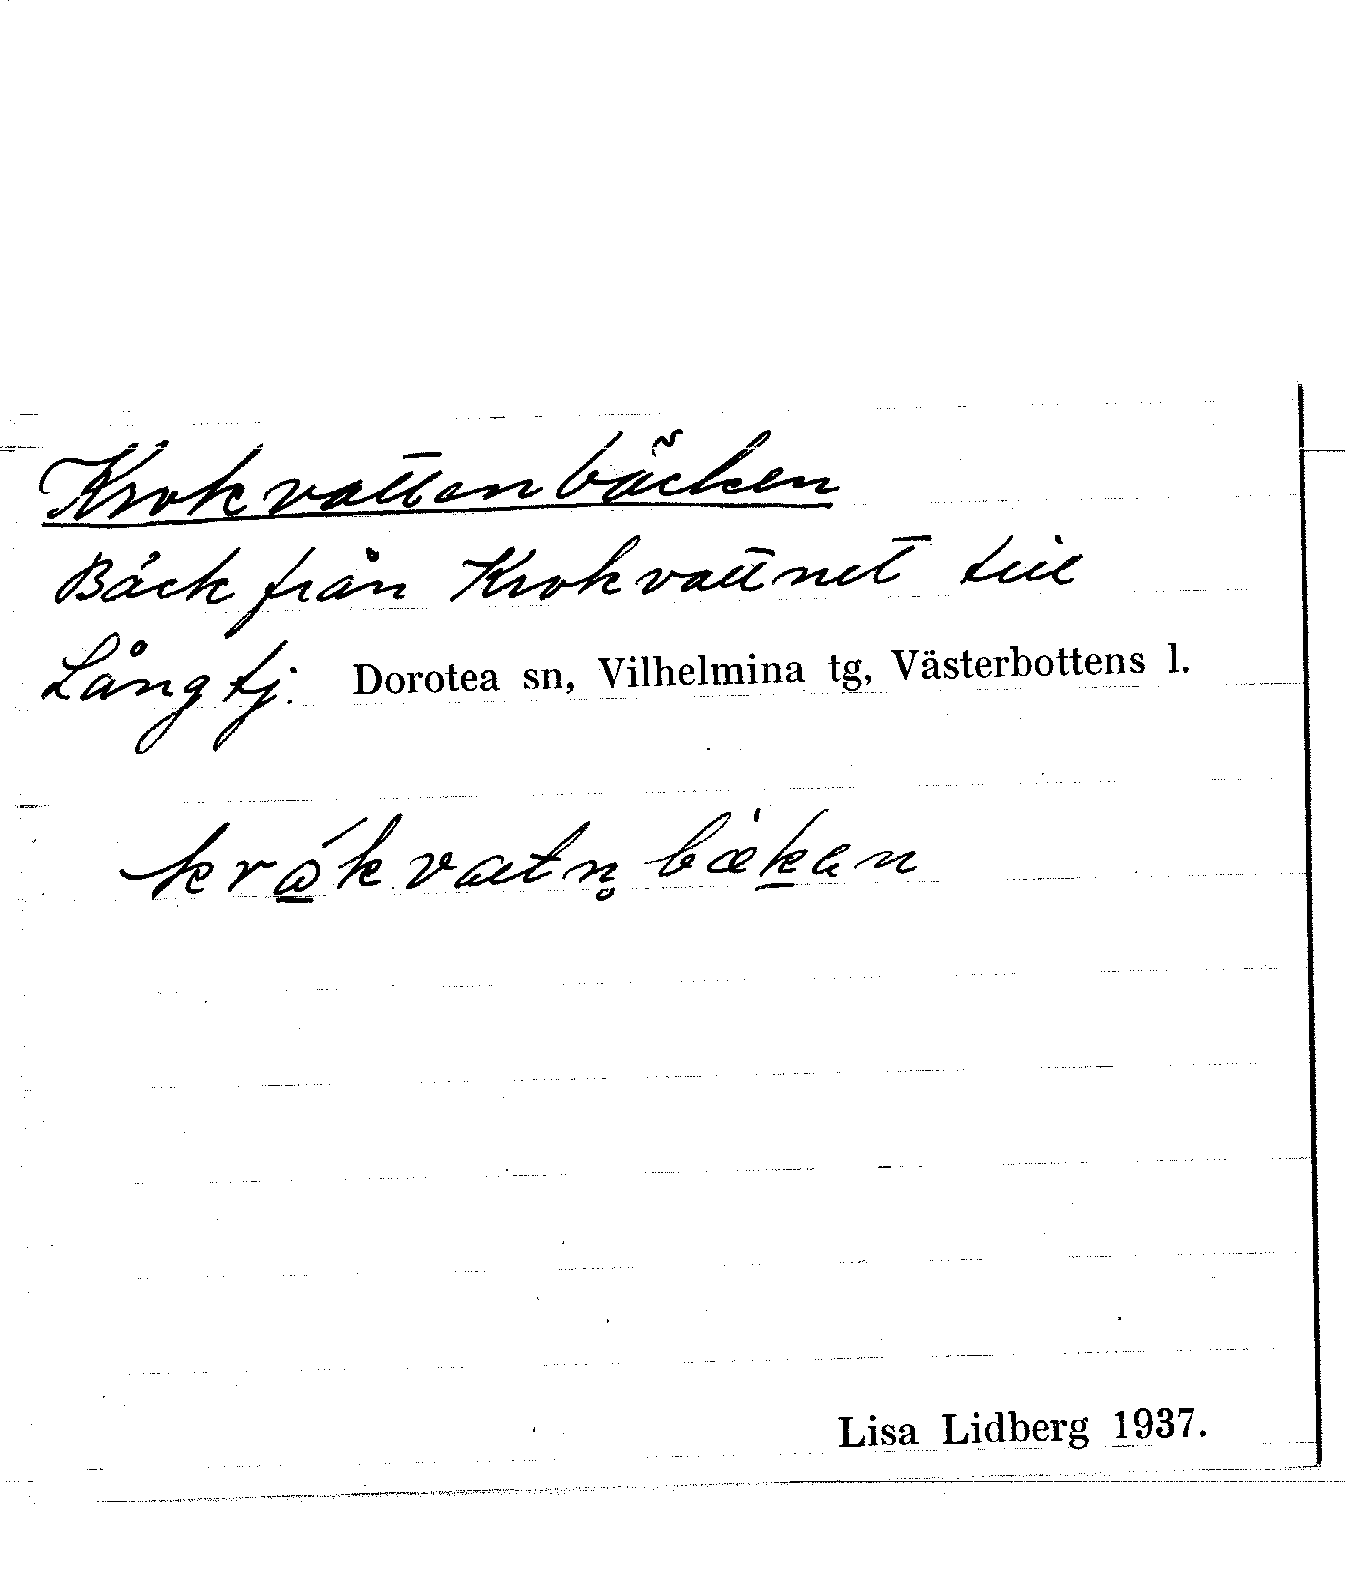 Krokvattenbäcken
Bäck från Krokvattnet till
Långtj. Dorotea sn, Vilhelmina tg, Västerbottens l.
kråkvatn̥bækan
Lisa Lidberg 1937.